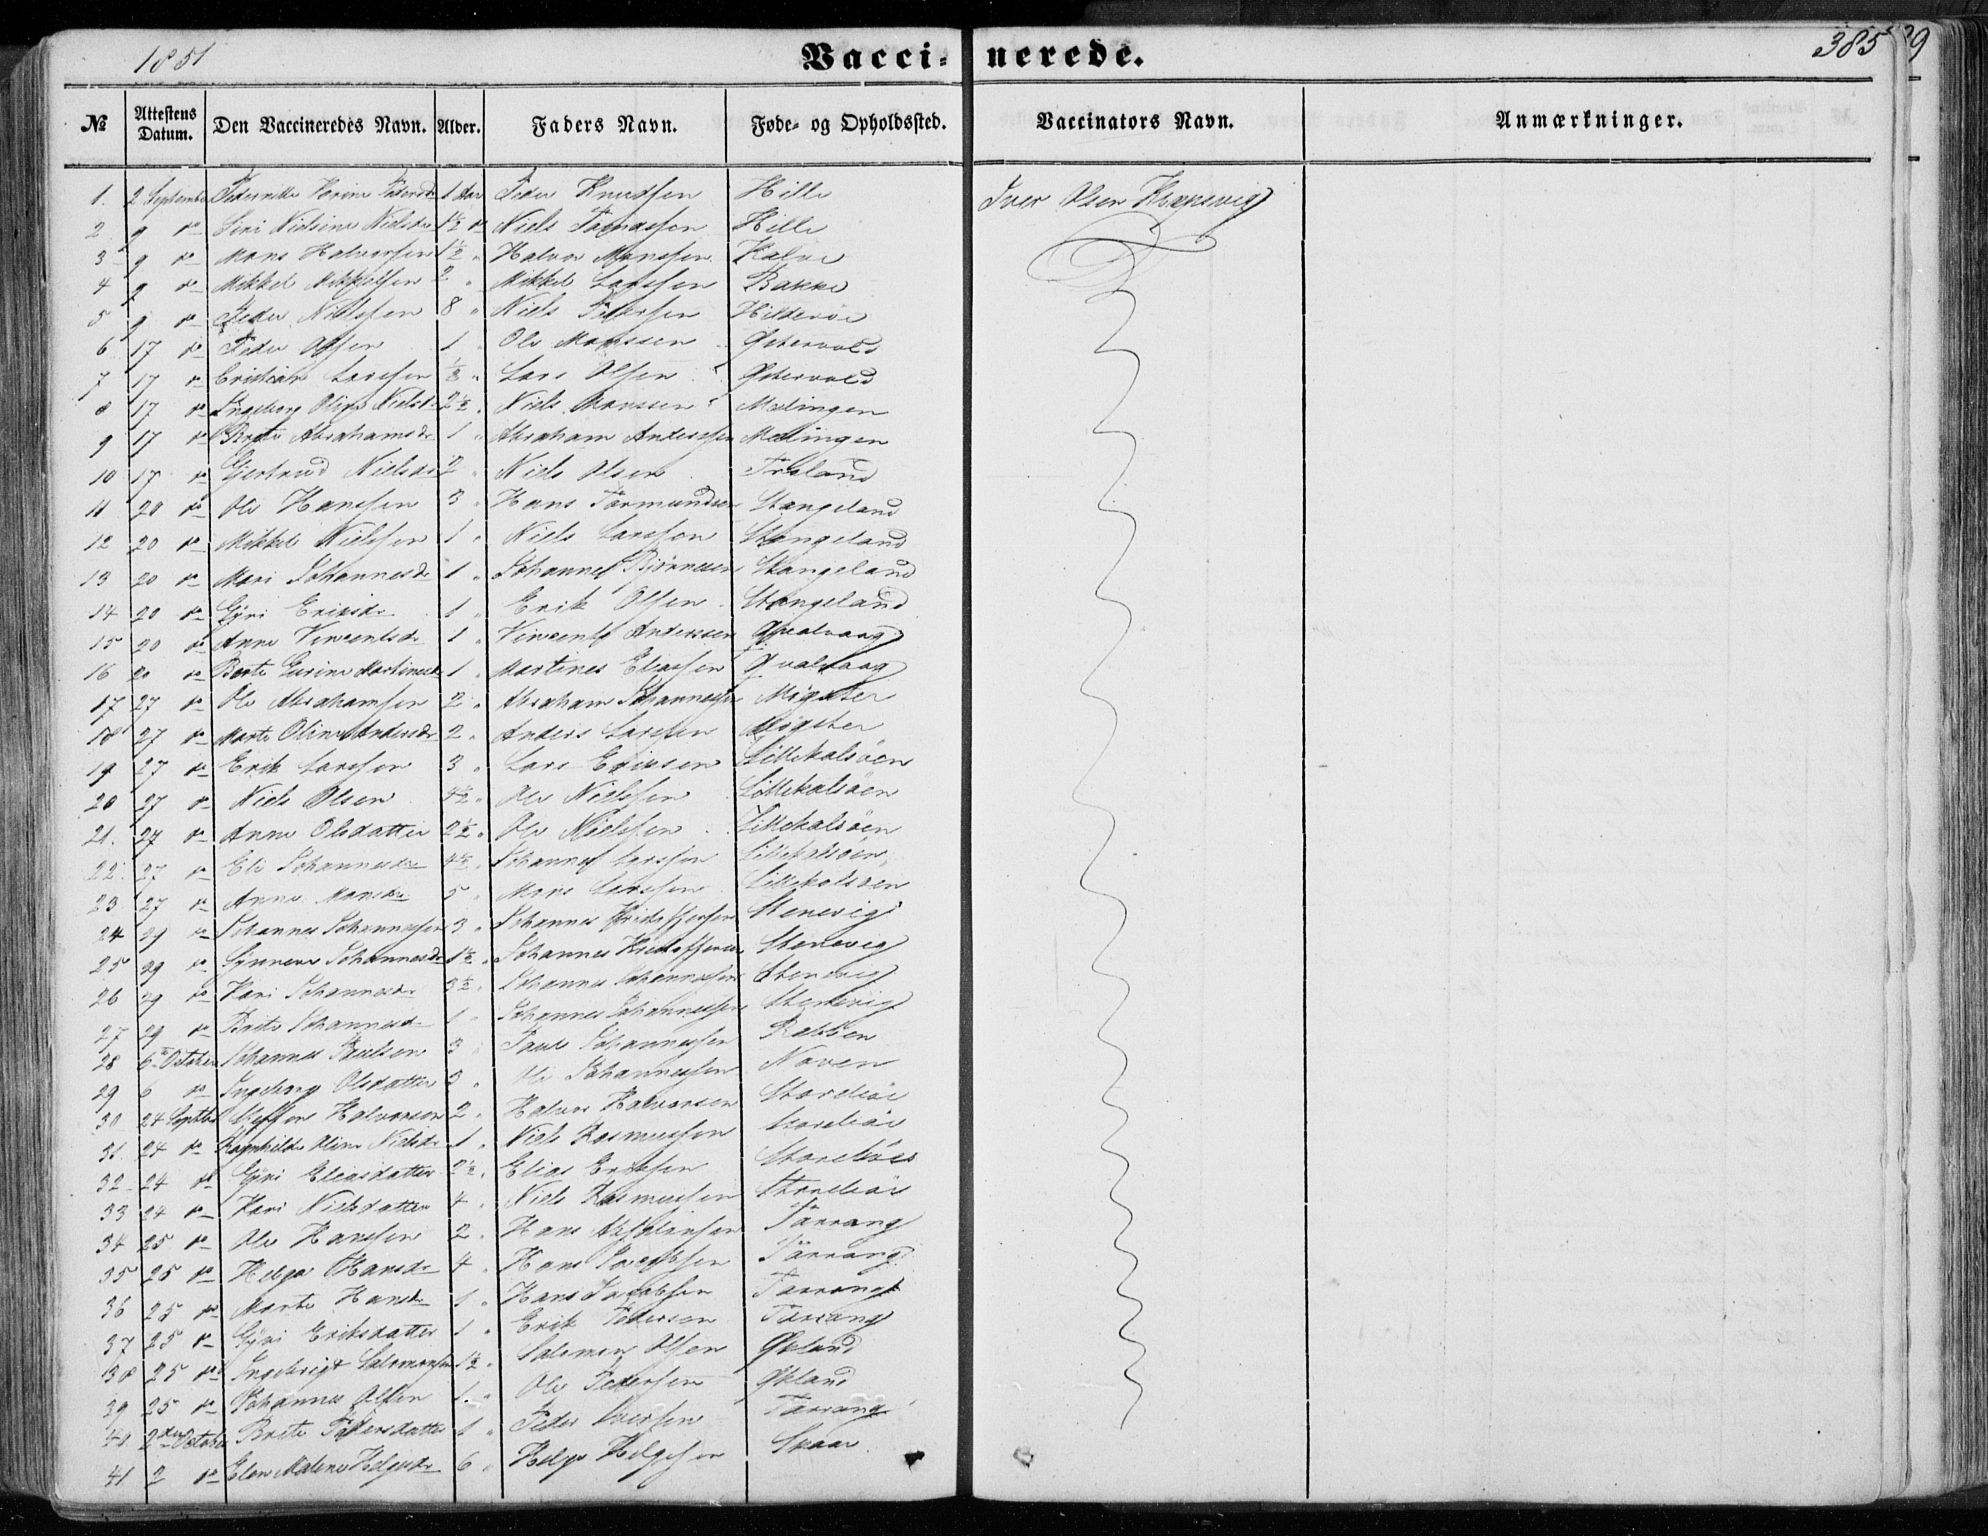 1851 Vaccinerede. 385
№ Attestens Datum. Den Vaccineredes Navn. Alder. Faders Navn. Føde- og Opholdssted. Vaccinators Navn. Anmærkninger.
1. 2 September Pedernille Karine Pedersdr 1 Aar Peder Knudsen Hille Iver Olsen
2 9 do Siri Nielsine Nielsdr 1½ do Niels Hille
3 9 do Mons Halvorsen 1½ " Halvor Monssen Kalve
4 9 do Mikkel Mikkelsen 2 " Mikkel Larssen Bakke
5 9 do Peder Nielssen 8 " Niels Pedersen Hilderøe
6 17 do Peder Olsen 1 " Ole Monssen Østervold
7 17 do Cristian Larssen ½ " Lars Olsen Østervold
8 17 do Ingeborg Nielsdr 2½ " Niels Monssen Melingen
9 17 do Brite Abrahamsdr 1 " Abraham Anderssen Melingen
10 17 do Gjertrud Nielsdr 2 " Niels Olsen Træland
11 20 do Ole Hanssen 3 " Hans Tormundsen Stangeland
12 20 do Mikkel Nielssen 1 " Niels Larssen Stangeland
13 20 do Mari Johannesdr 1 " Johannes Bjørnessen Stangeland
14 20 do Gjøri Eriksdr 1 " Erik Olsen Stangeland
15 20 do Anne Vincentsdr 1 " Vincents Anderssen Qvalvaag
16 20 do Berte Gurine Martinesdr 1 " Martines Eliassen Qvalvaag
17 27 do Ole Abrahamsen 2 " Abraham Johannessen Møgster
18 27 do Marte Oline Andersdr 2 " Anders Larssen Møgster
19 27 do Erik Larssen 3 " Lars Erikssen Lillekalsøen
20 27 do Niels Olsen 4½ " Ole Nielssen Lillekalsøen
21. 27 do Anne Olsdatter 2½ " Ole Nielssen Lillekalsøen
22 27 do Eli Johannesdr 4½ " Johannes Larssen Lillekalsøen
23 27 do Anne Monsdr 5 " Mons Larssen Lillekalsøen
24 29 do Johannes Johannessen 3 " Johannes Kristoffersen Stenevig
25 29 do Synneve Johannesdr 1½ " Johannes Kristoffersen Stenevig
26 29 do Kari Johannesdr 3½ " Johannes Johannessen Stenevig
27 29 do Brite Johannesdr 1 " Johannes Johannessen Stenevig
28 6te October Johannes Paulsen 3 " Paul Johannessen
29 6 do Ingeborg Olsdatter 3 " Ole Johannessen Noven
30 24 Septbr Steffen Halvorsen 2 " Halvor Halvorsen Storekøe
31 24 do Ragnhilde Oline Nielsdr 1 " Niels Rasmussen Storekøe
32 24 do Gjøri Eliasdatter 2½ " Elias Erikssen Storekøe
33 24 do Kari Nielsdatter 4 " Niels Rasmussen Storekøe
34 25 do Ole Hanssen 2 " Hans Tærrang
35 25 do Helge Hansdr 4 " Hans Jacobsen Tærrang
36 25 do Marte Hansdr 1 " Hans Jacobsen Tærrang
37 25 do Gjøri Eriksdatter 1 " Erik Pedersen Tærrang
38 25 do Ingebrigt Salomonsen 1½ " Salomon Olsen Økland
39 25 do Johannes Olsen 1 " Ole Pedersen Økland
40 2den October Brite Pedersdatter 1 " Peder Iversen Tærrang
41 2 do Elen Malene Helgesdr 6 " Helge Helgesen Skaar